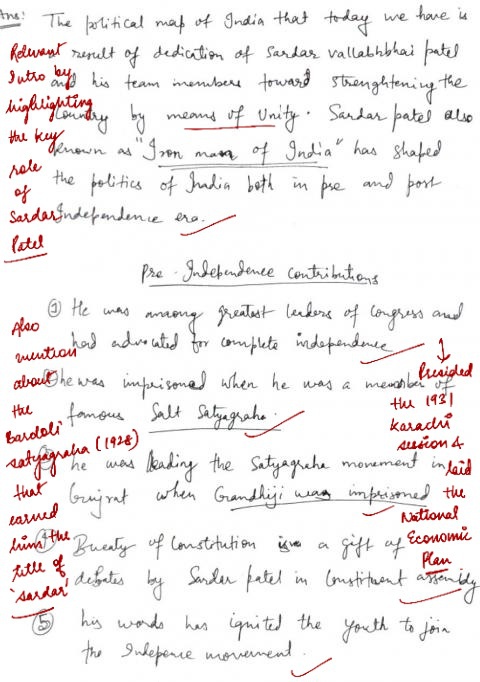 Ans: The political map of India that today we have is
a result of dedication of Sardar vallabhbhai patel
and his team members toward strenghtening the
Country by means of Unity. Sardar patel also
known as "Iron man of India" has shaped
the politics of India both in pre and post
Independence era.
Relevant
Intro by
highlighting
the key
role
of
Sardar
Patel
Pre-Independence contributions
① He was amaong greatest leaders of Congress and
had advocated for complete independence
he was imprisoned when he was a member of
famous Salt Satyagraha.
he was leading the Satyagraha movement in
Gujrat when Gandhiji was imprisoned
④ Bueaty of Constitution is a gift of
debates by Sardar patel in Constituent assembly
⑤ his words has ignited the youth to join
the Indepence movement.
Also
mention
about
the
Bardoli
satyagraha (1928)
that
earned
him the
title of
'sardar'
Presided
the 1931
Karachi
session &
laid
the
National
Economic
Plan